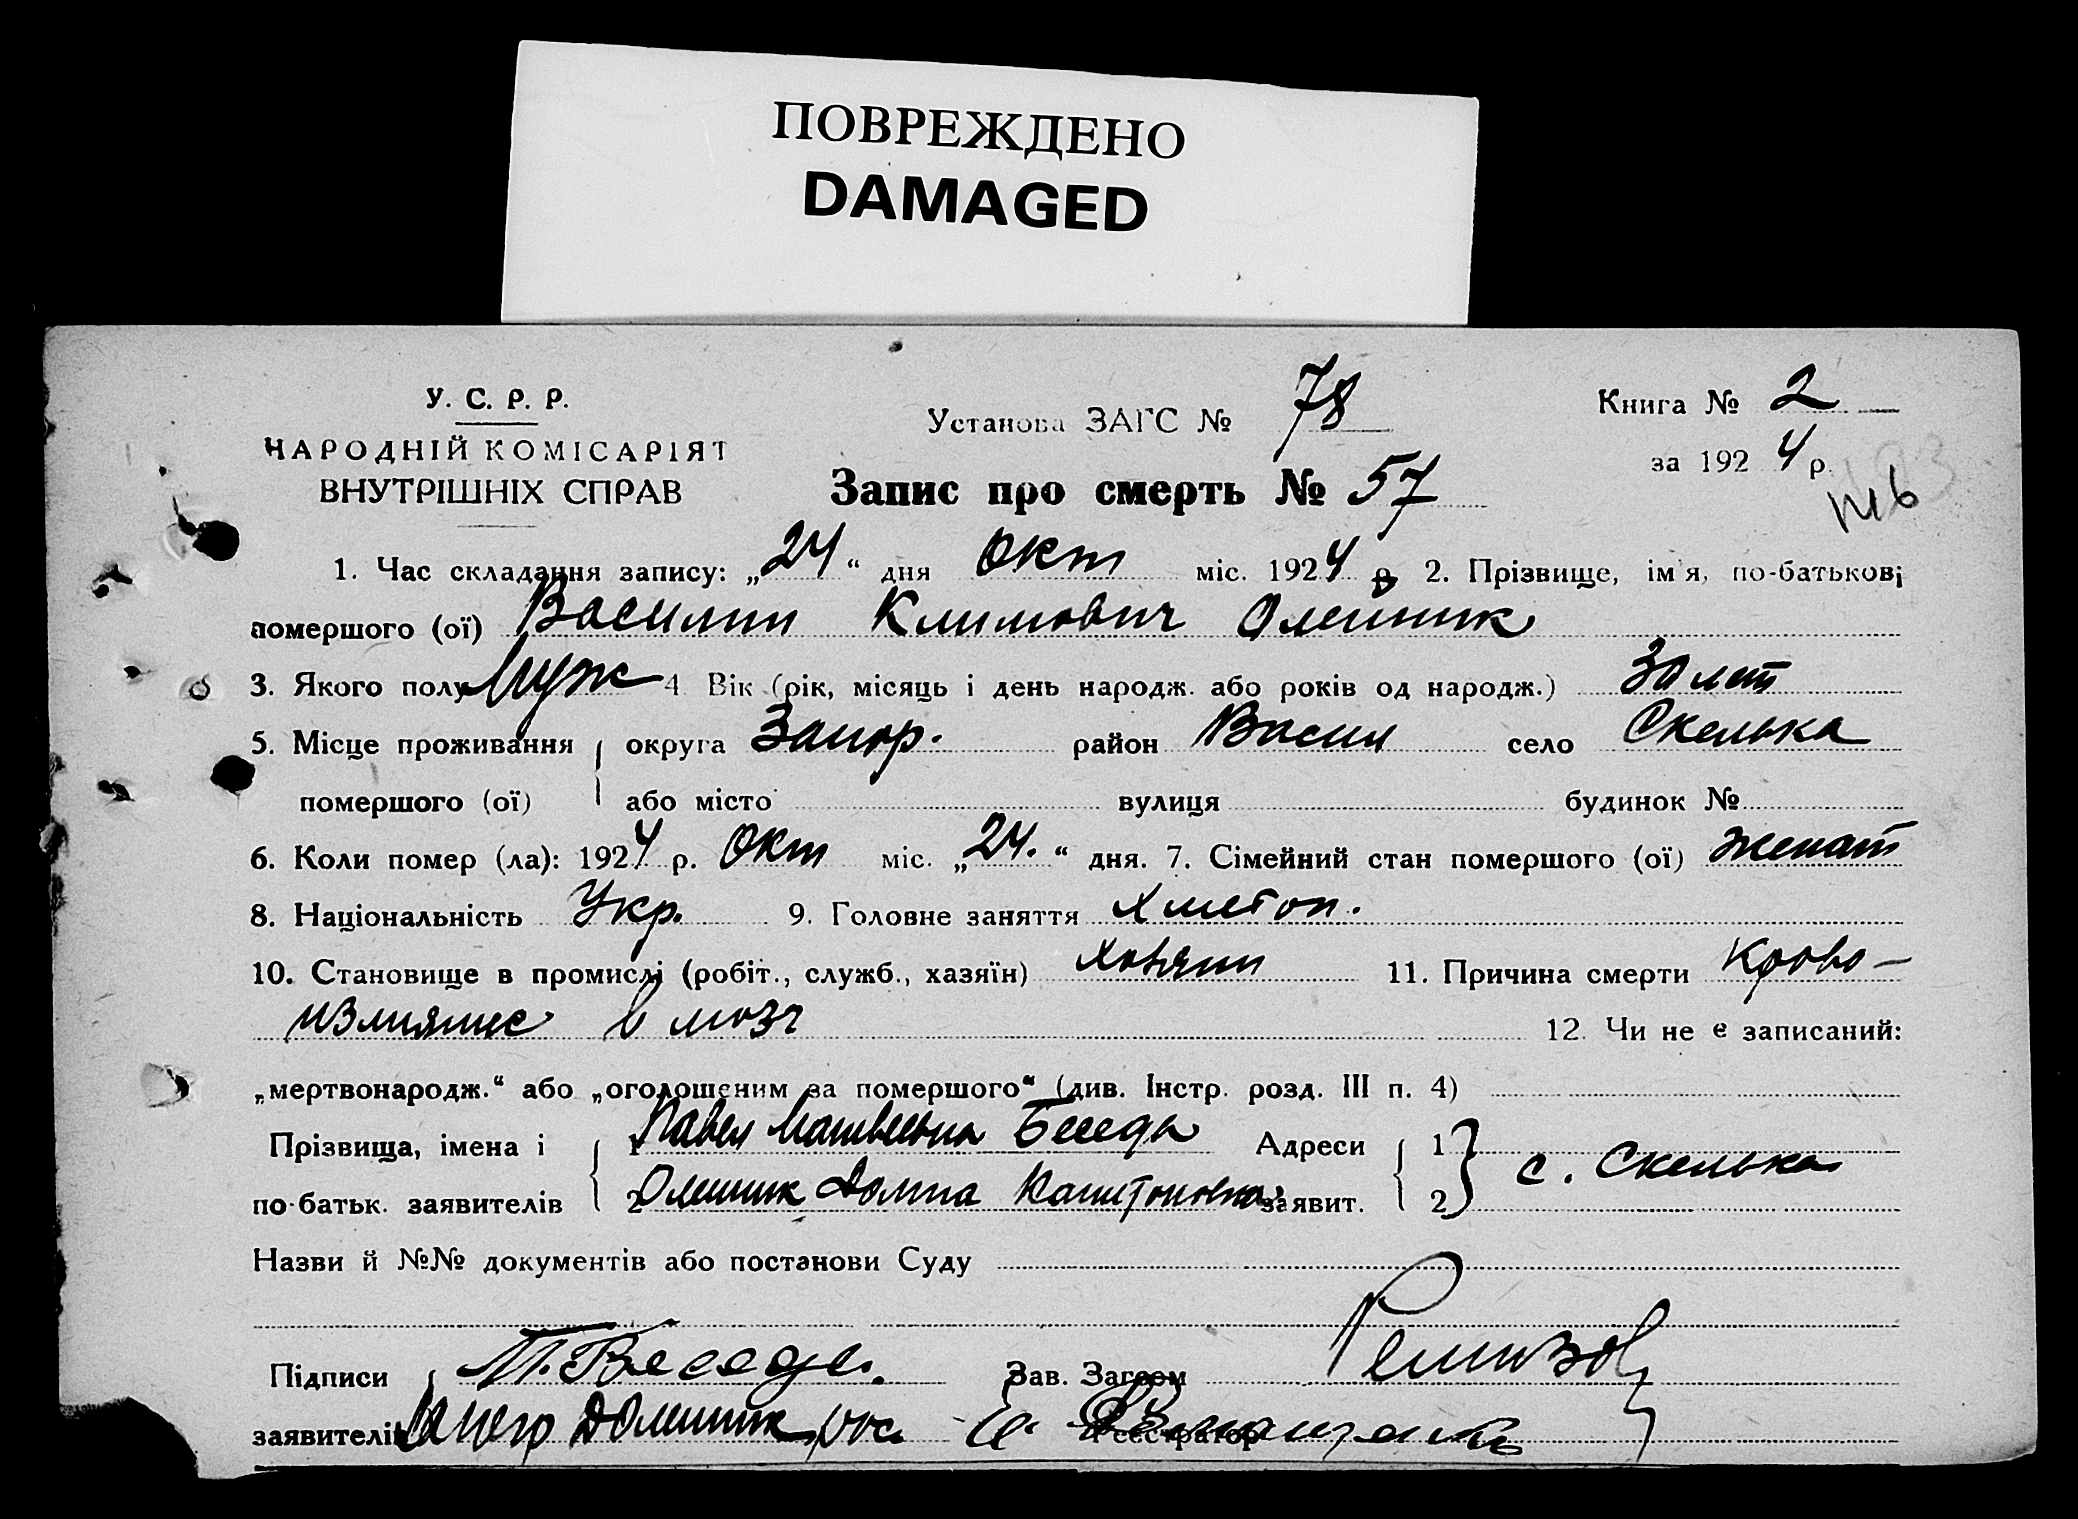 ПОВРЕЖДЕНО
DAMAGED
У. С. Р. Р.
НАРОДНІЙ КОМІСАРІЯТ
ВНУТРІШНІХ СПРАВ
Установа ЗАГС № 78
Книга № 2
за 1924 р.
Запис про смерть № 57
1. Час складання запису: „24“ дня окт міс. 1924 р. 2. Прізвище, ім'я, по-батькові
помершого (ої) Василий Климович Олейник
3. Якого полу Муж 4. Вік (рік, місяць і день народж. або років од народж.) 30 лет
5. Місце проживання округа Запор. район Васил село Скелька
помершого (ої) або місто вулиця будинок №
6. Коли помер (ла): 1924 р. Окт міс. „24.“ дня. 7. Сімейний стан помершого (ої) женат
8. Національність Укр. 9. Головне заняття
10. Становище в промислі (робіт., служб., хазяїн) хозяин 11. Причина смерти Крово-
излияние в мозг 12. Чи не є записаний:
„мертвонародж.“ або „оголошеним за помершого“ (див. Інстр. розд. III п. 4)
Прізвища, імена і 1 Павел Беседа Адреси 1
по-батьк. заявителів 2 Олейник Домна Капитоновна заявит. 2 с. Скелька
Назви й №№ документів або постанови Суду
Підписи П. Беседа. Зав. Загсом Ремизов
заявителів Реєстратор